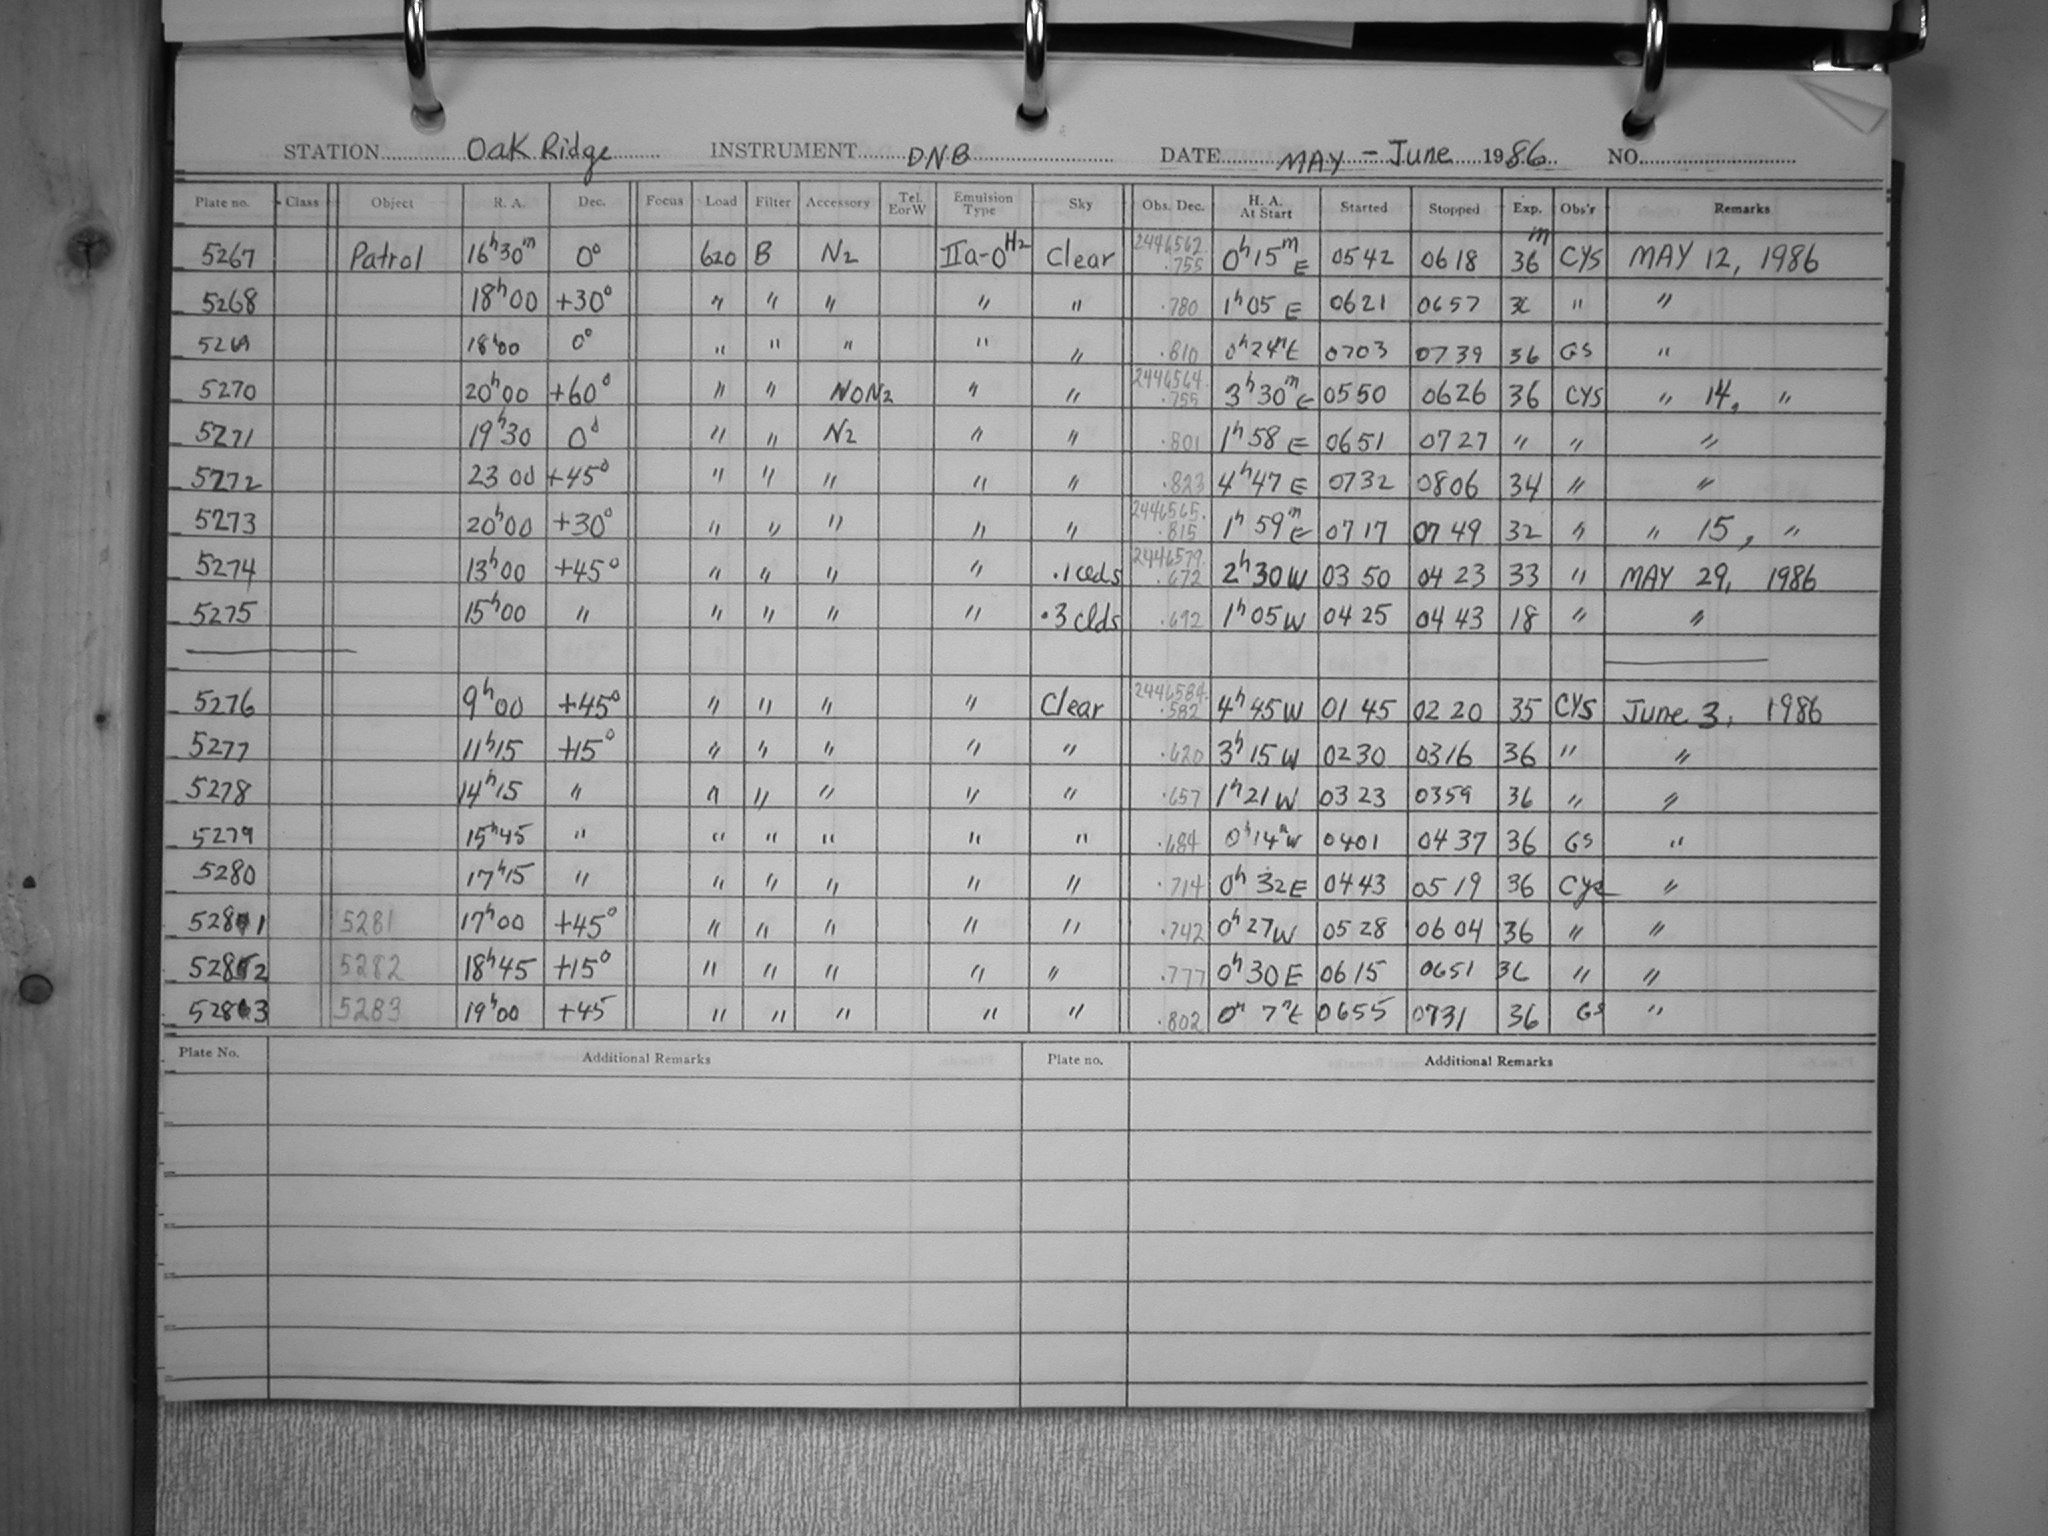 STATION Oak Ridge INSTRUMENT DNB DATE MAY - June 1986 NO.
Plate no. Class Object R. A. Dec. Focus Load Filter Accessory Tel. EorW Emulsion Type Sky Obs. Dec. H. A. At Start Started Stopped Exp. Obs'r Remarks
5267 Patrol 16h30m 0° 620 B N2 IIa-OH2 Clear 2446562.755 0h15m E 0542 0618 36m CYS MAY 12, 1986
5268 18h00 +30° " " " " " .780 1h05 E 0621 0657 36 " "
5269 18h00 0° " " " " " .810 0h24m E 0703 0739 36 GS "
5270 20h00 +60° " " NON2 " " 2446564.755 3h30m E 0550 0626 36 CYS " 14, "
5271 19h30 0° " " N2 " " .801 1h58 E 0651 0727 " " "
5272 23 00 +45° " " " " " .823 4h47 E 0732 0806 34 " "
5273 20h00 +30° " " " " " 2446565.815 1h59m E 0717 0749 32 " " 15, "
5274 13h00 +45° " " " " .1 clds 2446579.672 2h30 W 03 50 04 23 33 " MAY 29, 1986
5275 15h00 " " " " " .3 clds .692 1h05 W 04 25 04 43 18 " "
5276 9h00 +45° " " " " Clear 2446584.582 4h45 W 01 45 02 20 35 CYS June 3, 1986
5277 11h15 +15° " " " " " .620 3h15 W 0230 0316 36 " "
5278 14h15 " " " " " " .657 1h21 W 03 23 0359 36 " "
5279 15h45 " " " " " " .684 0h14m W 0401 04 37 36 GS "
5280 17h15 " " " " " " .714 0h 32 E 04 43 05 19 36 CYS "
5281 5281 17h00 +45° " " " " " .742 0h27 W 05 28 06 04 36 " "
5282 5282 18h45 +15° " " " " " .777 0h30 E 06 15 0651 36 " "
5283 5283 19h00 +45 " " " " " .802 0h 7m E 0655 0731 36 GS "
Plate No. Additional Remarks Plate no. Additional Remarks